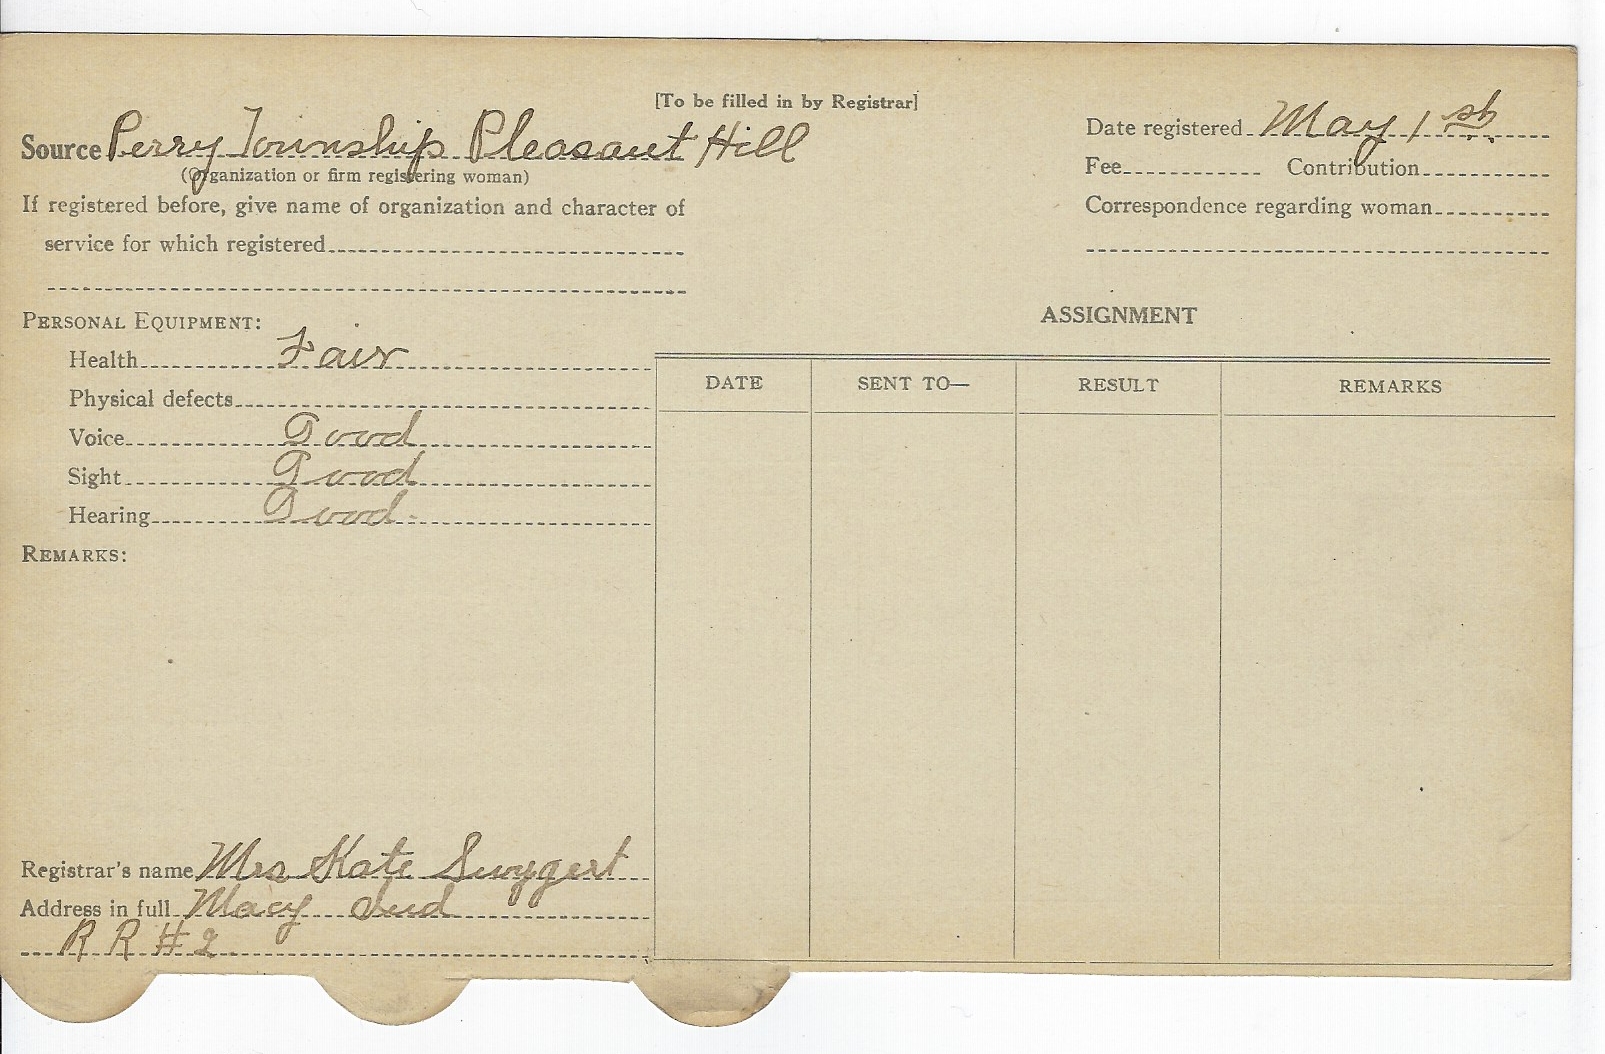 [To be filled in by Registrar]
Source Perry Township Pleasant Hill
(Organization or firm registering woman)
If registered before, give name of organization and character of
service for which registered
Date registered May 1st
Fee Contribution
Correspondence regarding woman
PERSONAL EQUIPMENT:
Health Fair
Physical defects
Voice Good
Sight Good
Hearing Good
REMARKS:
Registrar's name Mrs Kate Swygert
Address in full Macy Ind
R R #2
ASSIGNMENT
DATE SENT TO— RESULT REMARKS